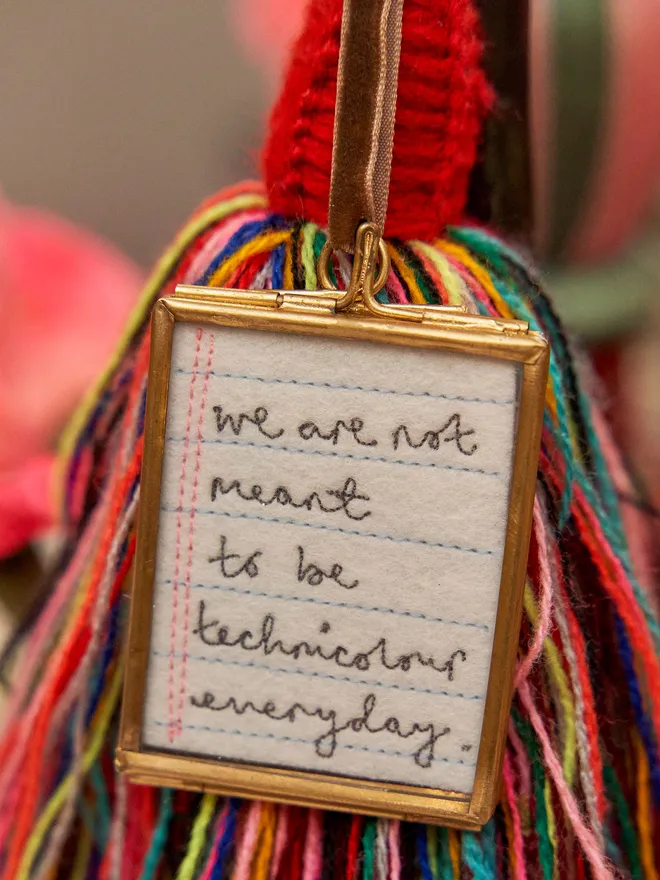 we are not
meant
to be
technicolour
everyday.